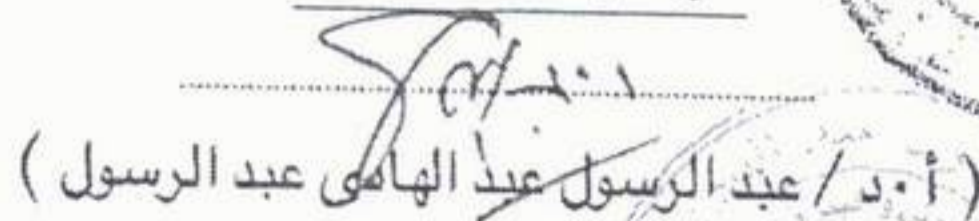 ( أ٠د / عبد الرسول عبد الهادى عبد الرسول )